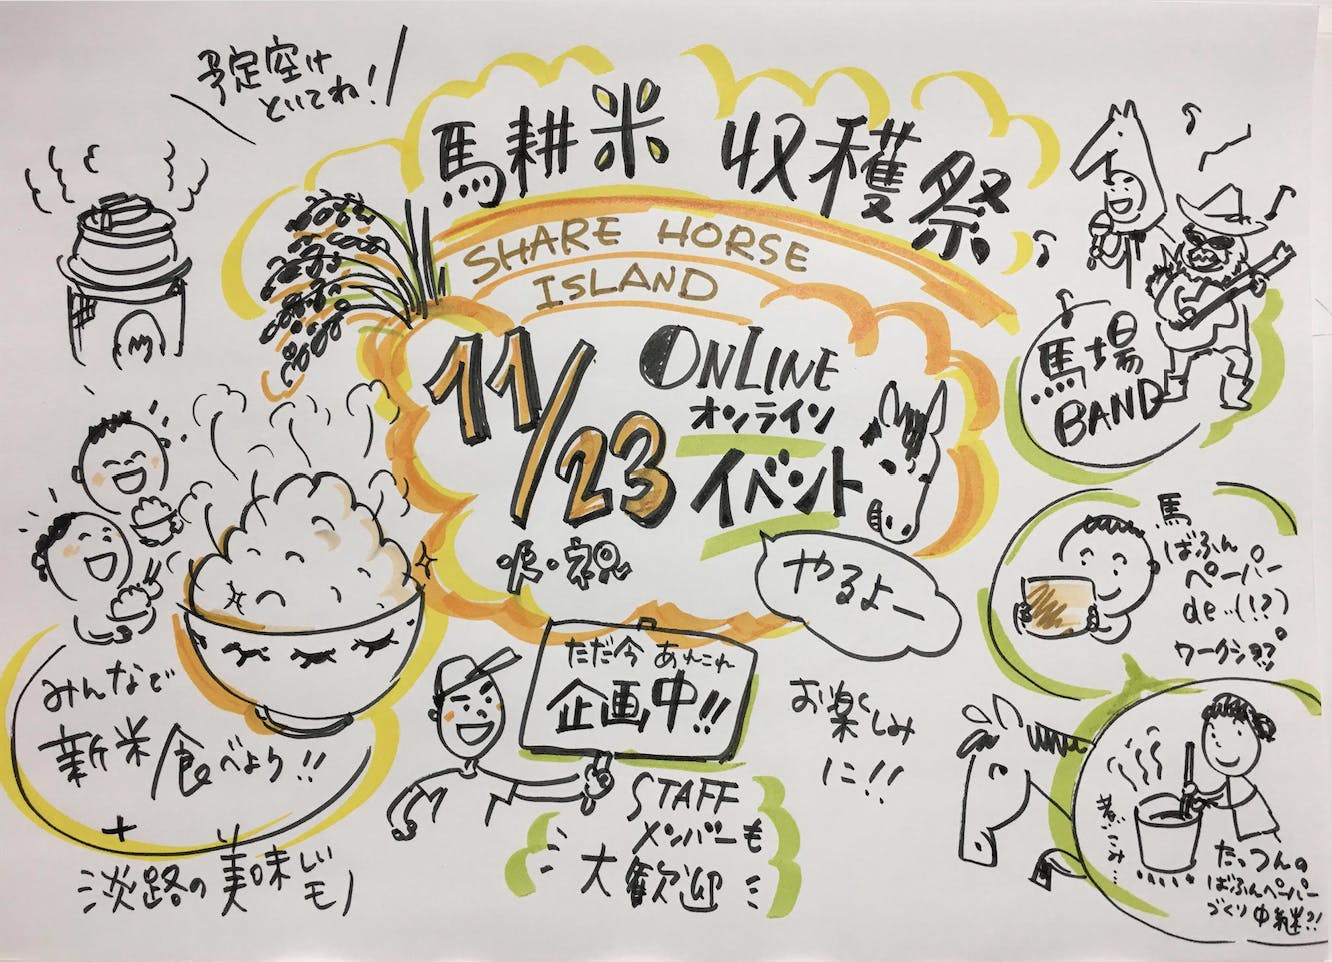 予定空け
といてね!
馬耕米 収穫祭
SHARE HORSE
ISLAND
11/23
ONLINE
オンライン
イベント
やるよー
馬場
BAND
馬
ばふん
ペーパー
de…(!?)
ワークショップ
みんなで
新米食べよう!!
+
淡路の美味しいモノ
ただ今 あれこれ
企画中!!
お楽しみ
に!!
STAFF
メンバーも
大歓迎
煮こみ…
たっつんの
ばふんペーパー
づくり中継?!